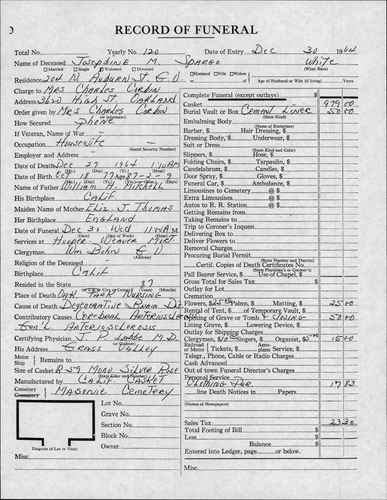 RECORD OF FUNERAL
Total No. Yearly No. 120 Date of Entry Dec 30 1964
Name of Deceased Josephine M. Spargo White
Married Single Widowed Divorced Husband Wife Widow (What Race)
Residence 204 N. Auburn St. G.V. Age of Husband or Wife (if living) Years
Charge to Mrs Charles Corbin
Address 3620 High St. Oakland
Order given by Mrs Charles Corbin
How Secured Phone
If Veteran, Name of War
Occupation Housewife (Social Security Number)
Employer and Address
Date of Death Dec 27 1964 1:10 AM
Date of Birth Oct 18 1877 Age 87-2-9
Name of Father William H. Mitchell
His Birthplace Calif
Maiden Name of Mother Eliz J. Thomas
Her Birthplace England
Date of Funeral Dec 31 Wed 11:00 AM
Services at Hooper-Weaver Mort
Clergyman Wm Bohn G.V.
Religion of the Deceased
Birthplace Calif
Resided in the State 87
Place of Death Oak Park Nursing
Cause of Death Degenerative Brain Dis
Contributory Causes Cerebral Arterioscler
Gen'l Arteriosclerosis
Certifying Physician J. P. Lobbe M.D.
His Address Grass Valley
Motor Ship Remains to
Size of Casket
Manufactured by Calif Casket
Cemetery Masonic Cemetery
Lot No.
Grave No.
Section No.
Block No.
Owner
Diagram of Lot or Vault
Misc.
Complete Funeral (except outlays) $
Casket 979.00
Burial Vault or Box Cement Liner 50.00
(State Kind)
Embalming Body
(Name of Embalmer)
Barber, $ Hair Dressing, $
Dressing Body, $ Underwear, $
Suit or Dress
(State Kind and Color)
Slippers, $ Hose, $
Folding Chairs, $ Tarpaulin, $
Candelabrum, $ Candles, $
Door Spray, $ Gloves, $
Funeral Car, $ Ambulance, $
Limousines to Cemetery @ $
Extra Limousines @ $
Autos to R. R. Station @ $
Getting Remains from
Taking Remains to
Trip to Coroner's Inquest
Delivering Box to
Deliver Flowers to
Removal Charges
Procuring Burial Permit
Certif. Copies of Death Certificates No.
Pall Bearer Service, $ Use of Chapel, $
Gross Total for Sales Tax $
Outlay for Lot
Cremation
Flowers, $25.00 Palms, $ Matting, $ 25.00
Rental of Tent, $ of Temporary Vault, $
Opening of Grave or Tomb 50.00
Lining Grave, $ Lowering Device, $
Outlay for Shipping Charges
Clergyman, $ Singers, $ Organist, $ 15.00
Rail or Motor Tickets, $ Airplane Service, $
Telegr., Phone, Cable or Radio Charges
Cash Advanced
Out of town Funeral Director's Charges
Personal Service
Clothing Pur. 17.83
line Death Notices in Papers
(Names of Newspapers)
Sales Tax 23.30
Total Footing of Bill $
Less $
Balance $
Entered into Ledger, page or below.
Misc.